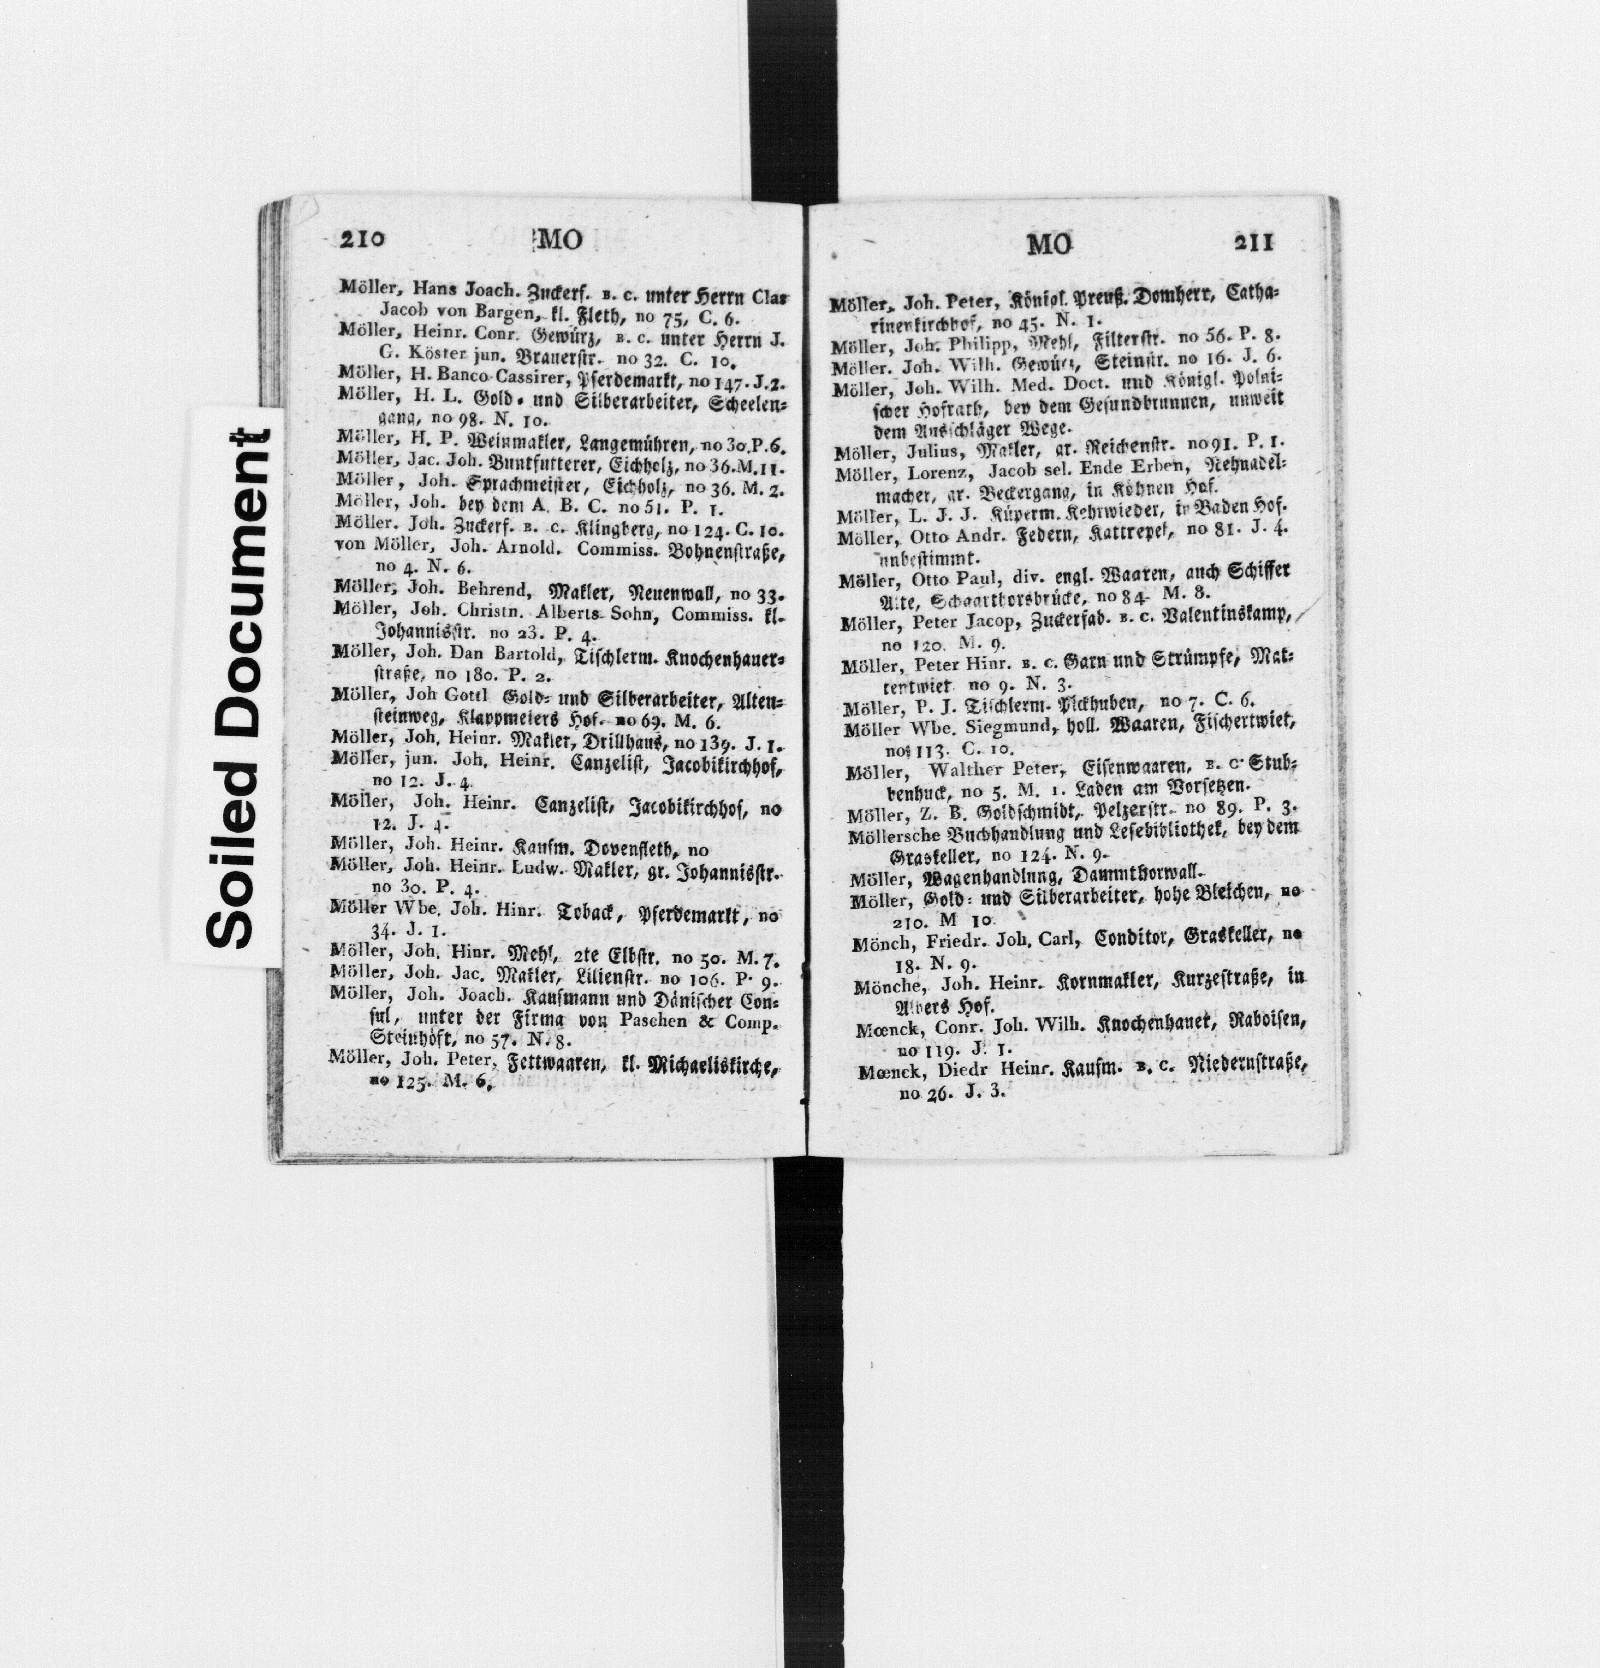 Soiled Document
210 MO
Möller, Hans Joach. Zuckerf. B. C. unter Herrn Clas
Jacob von Bargen, kl. Fleth, no 75, C. 6.
Möller, Heinr. Conr. Gewürz, B. C. unter Herrn J.
G. Köster jun. Brauerstr. no 32. C. 10.
Möller, H. Banco Cassirer, Pferdemarkt, no 147. J. 2.
Möller, H. L. Gold- und Silberarbeiter, Scheelen-
gang, no 98. N. 10.
Möller, H. P. Weinmakler, Langemühren, no 30. P. 6.
Möller, Jac. Joh. Buntfutterer, Eichholz, no 36. M. 11.
Möller, Joh. Sprachmeister, Eichholz, no 36. M. 2.
Möller, Joh. bey dem A. B. C. no 51. P. 1.
Möller. Joh. Zuckerf. B. C. Klingberg, no 124. C. 10.
von Möller, Joh. Arnold. Commiss. Bohnenstraße,
no 4. N. 6.
Möller, Joh. Behrend, Makler, Neuenwall, no 33.
Möller, Joh. Christn. Alberts Sohn, Commiss. kl.
Johannisstr. no 23. P. 4.
Möller, Joh. Dan Bartold, Tischlerm. Knochenhauer-
straße, no 180. P. 2.
Möller, Joh Gottl Gold- und Silberarbeiter, Alten-
steinweg, Klappmeiers Hof. no 69. M. 6.
Möller, Joh. Heinr. Makler, Drillhaus, no 139. J. 1.
Möller, jun. Joh. Heinr. Canzelist, Jacobikirchhof,
no 12. J. 4.
Möller, Joh. Heinr. Canzelist, Jacobikirchhof, no
12. J. 4.
Möller, Joh. Heinr. Kaufm. Dovenfleth, no
Möller, Joh. Heinr. Ludw. Makler, gr. Johannisstr.
no 30. P. 4.
Möller Wbe. Joh. Hinr. Toback, Pferdemarkt, no
34. J. 1.
Möller, Joh. Hinr. Mehl, 2te Elbstr. no 50. M. 7.
Möller, Joh. Jac. Makler, Lilienstr. no 106. P. 9.
Möller, Joh. Joach. Kaufmann und Dänischer Con-
sul, unter der Firma von Paschen & Comp.
Steinhöft, no 57. N. 8.
Möller, Joh. Peter, Fettwaaren, kl. Michaeliskirche,
no 125. M. 6.
MO 211
Möller, Joh. Peter, Königl. Preuß. Domherr, Catha-
rinenkirchhof, no 45. N. 1.
Möller, Joh. Philipp, Mehl, Filterstr. no 56. P. 8.
Möller. Joh. Wilh. Gewürz, Steinstr. no 16. J. 6.
Möller, Joh. Wilh. Med. Doct. und Königl. Polni-
scher Hofrath, bey dem Gesundbrunnen, unweit
dem Ausschläger Wege.
Möller, Julius, Makler, gr. Reichenstr. no 91. P. 1.
Möller, Lorenz, Jacob sel. Ende Erben, Nehnadel-
macher, gr. Beckergang, in Köhnen Hof.
Möller, L. J. J. Küperm. Kehrwieder, in Baden Hof.
Möller, Otto Andr. Federn, Kattrepel, no 81. J. 4.
unbestimmt.
Möller, Otto Paul, div. engl. Waaren, auch Schiffer
Alte, Schaarthorsbrücke, no 84 M. 8.
Möller, Peter Jacop, Zuckerfab. B. C. Valentinskamp,
no 120. M. 9.
Möller, Peter Hinr. B. C. Garn und Strümpfe, Mat-
tentwiet no 9. N. 3.
Möller, P. J. Tischlerm. Pickhuben, no 7. C. 6.
Möller Wbe. Siegmund, holl. Waaren, Fischertwiet,
no 113. C. 10.
Möller, Walther Peter, Eisenwaaren, B. C. Stub-
benhuck, no 5. M. 1. Laden am Vorsetzen.
Möller, Z. B. Goldschmidt, Pelzerstr. no 89. P. 3.
Möllersche Buchhandlung und Lesebibliothek, bey dem
Graskeller, no 124. N. 9.
Möller, Wagenhandlung, Dammthorwall.
Möller, Gold- und Silberarbeiter, hohe Bleichen, no
210. M 10.
Mönch, Friedr. Joh. Carl, Conditor, Graskeller, no
18. N. 9.
Mönche, Joh. Heinr. Kornmakler, Kurzestraße, in
Albers Hof.
Mœnck, Conr. Joh. Wilh. Knochenhauer, Raboisen,
no 119. J. 1.
Mœnck, Diedr Heinr. Kaufm. B. C. Niedernstraße,
no 26. J. 3.